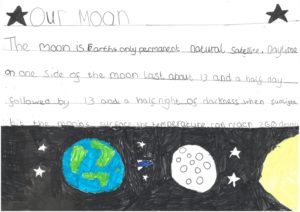 Our Moon
The moon is Earths only permanent natural satellite. Daytime
on one side of the moon last about 13 and a half day
followed by 13 and a half night of darkness when sunlight
the moon's surface the temperature can reach 260